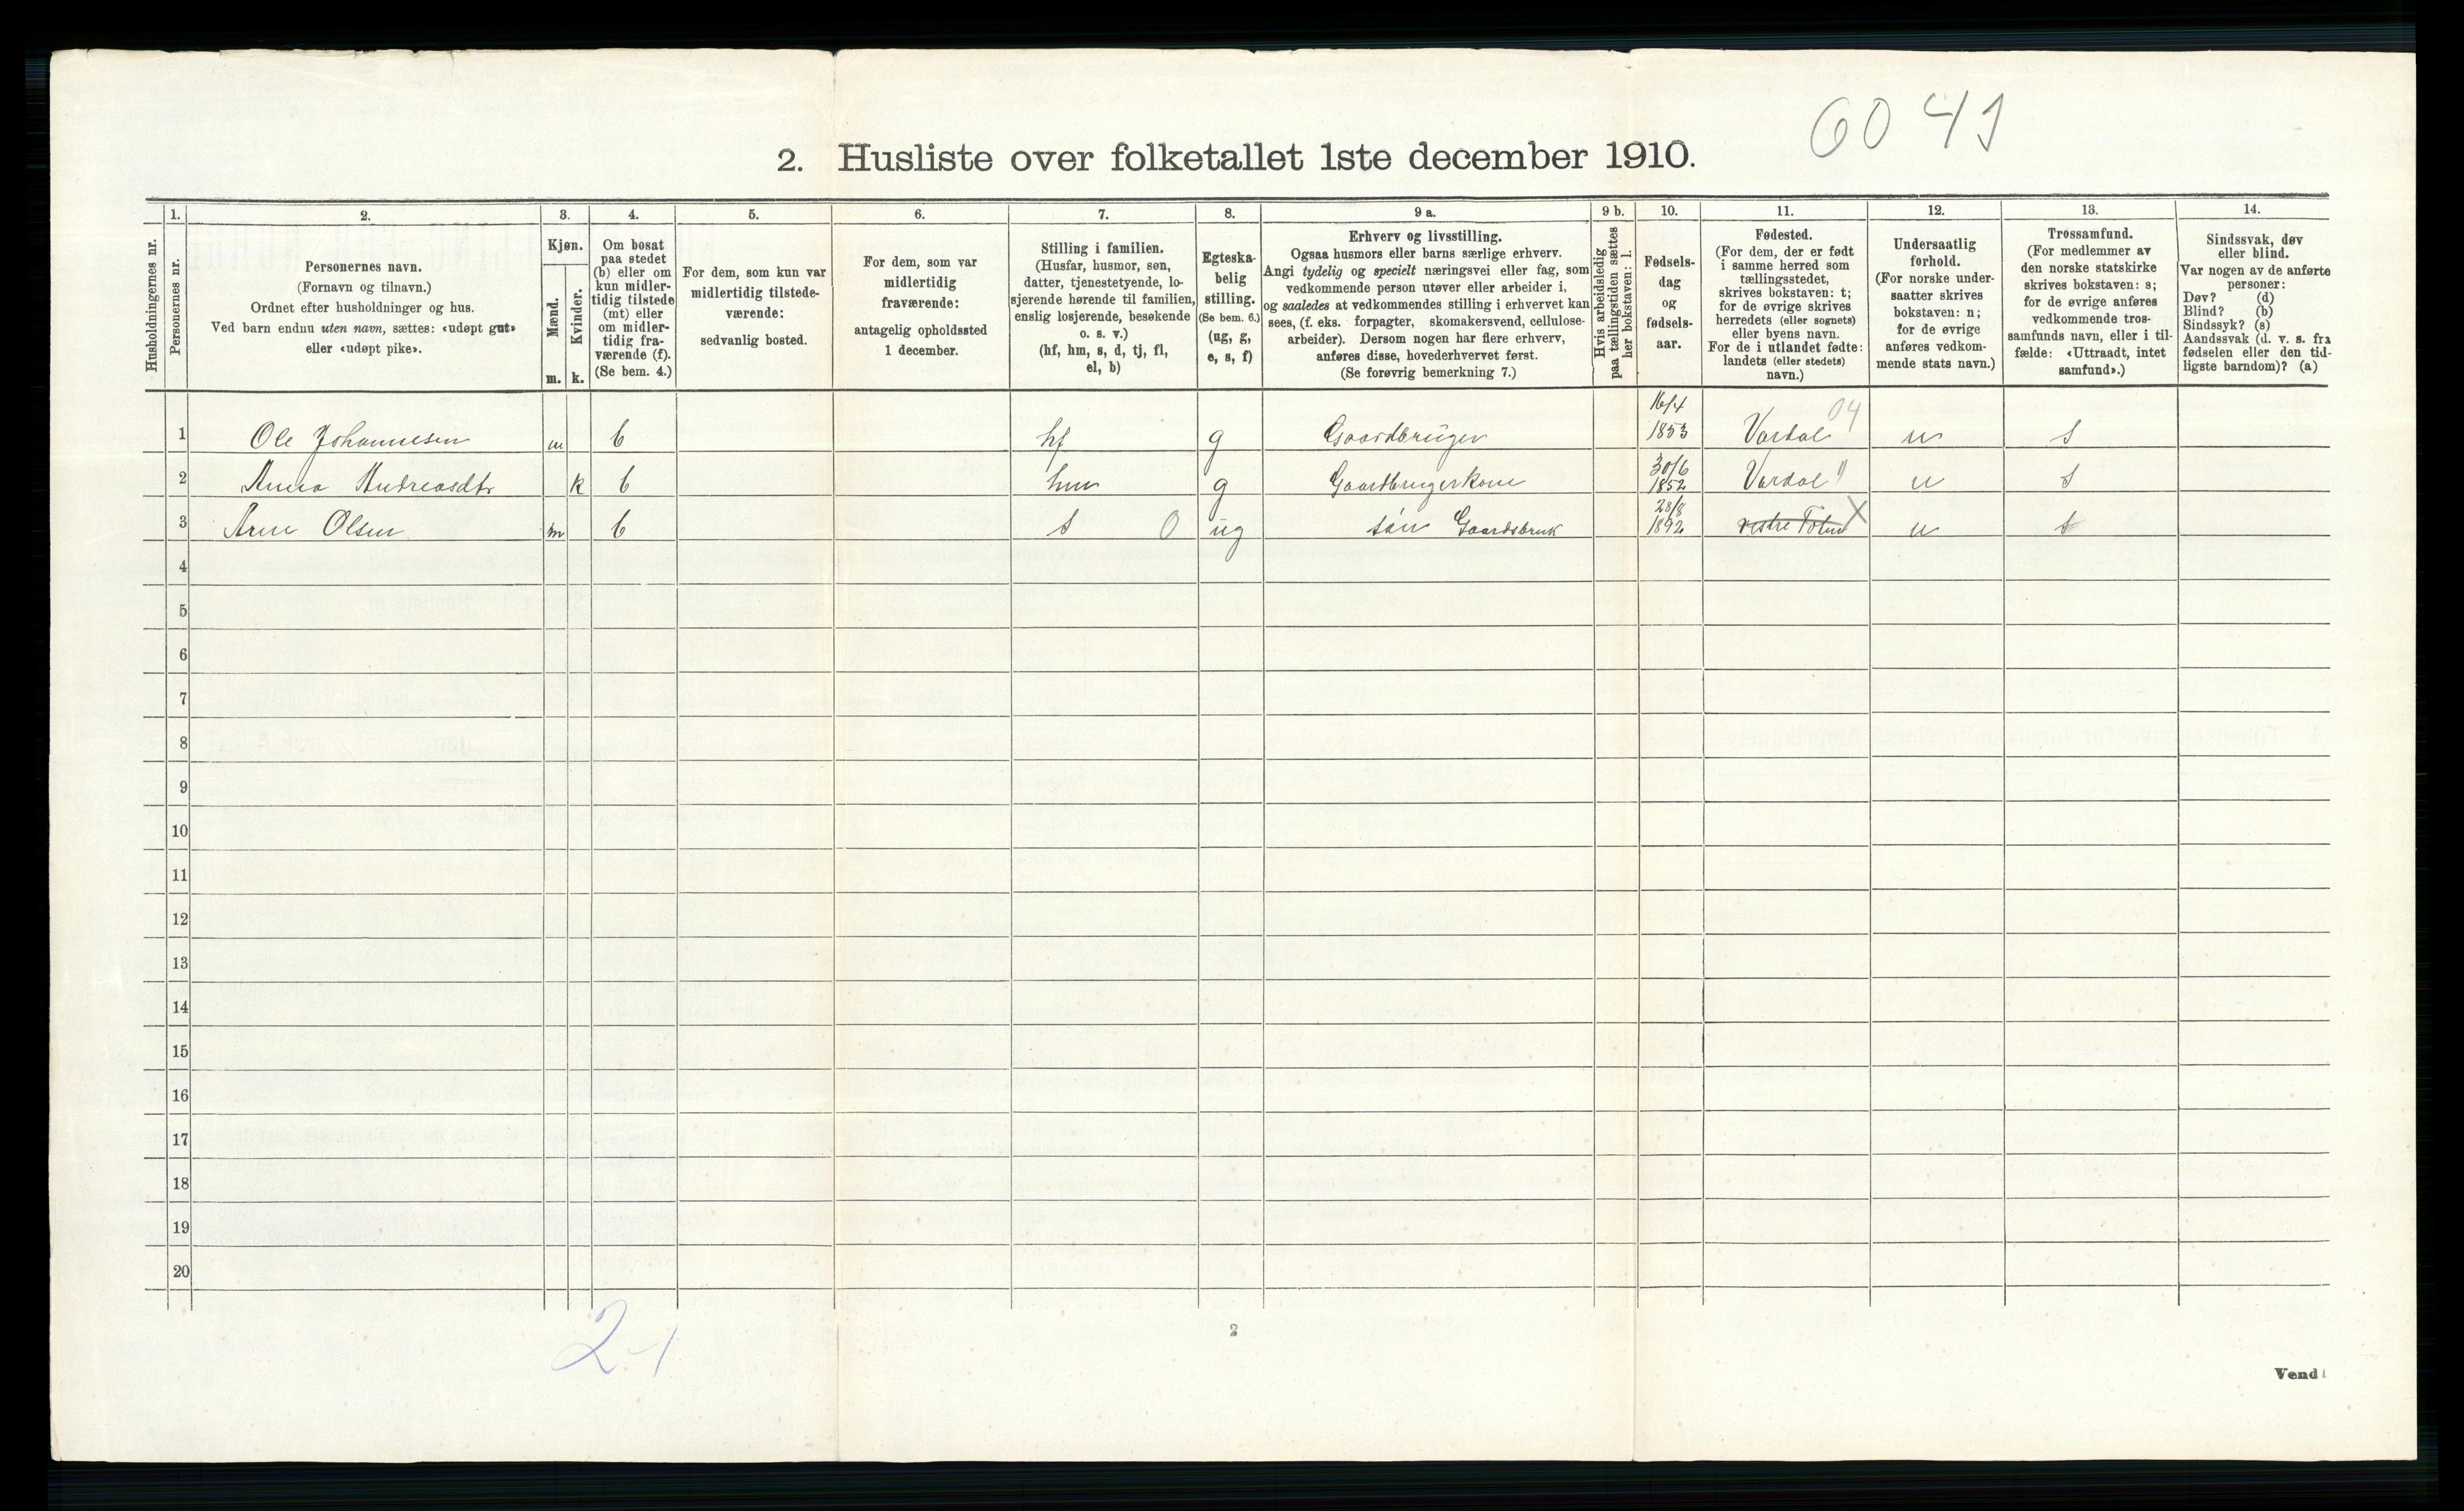 60 41
2. Husliste over folketallet 1ste december 1910.
1. 2. 3. 4. 5. 6. 7. 8. 9 a. 9 b. 10. 11. 12. 13. 14.
Husholdningernes nr.
Personernes nr.
Personernes navn.
(Fornavn og tilnavn.)
Ordnet efter husholdninger og hus.
Ved barn endnu uten navn, sættes: «udøpt gut»
eller «udøpt pike».
Kjøn.
Mænd.
Kvinder.
m. k.
Om bosat
paa stedet
(b) eller om
kun midler-
tidig tilstede
(mt) eller
om midler-
tidig fra-
værende (f).
(Se bem. 4.)
For dem, som kun var
midlertidig tilstede-
værende:
sedvanlig bosted.
For dem, som var
midlertidig
fraværende:
antagelig opholdssted
1 december.
Stilling i familien.
(Husfar, husmor, søn,
datter, tjenestetyende, lo-
sjerende hørende til familien,
enslig losjerende, besøkende
o. s. v.)
(hf, hm, s, d, tj, fl,
el, b)
Egteska-
belig
stilling.
(Se bem. 6.)
(ug, g,
e, s, f)
Erhverv og livsstilling.
Ogsaa husmors eller barns særlige erhverv.
Angi tydelig og specielt næringsvei eller fag, som
vedkommende person utøver eller arbeider i,
og saaledes at vedkommendes stilling i erhvervet kan
sees, (f. eks. forpagter, skomakersvend, cellulose-
arbeider). Dersom nogen har flere erhverv,
anføres disse, hovederhvervet først.
(Se forøvrig bemerkning 7.)
Hvis arbeidsledig
paa tællingstiden sættes
her bokstaven: l.
Fødsels-
dag
og
fødsels-
aar.
Fødested.
(For dem, der er født
i samme herred som
tællingsstedet,
skrives bokstaven: t;
for de øvrige skrives
herredets (eller sognets)
eller byens navn.
For de i utlandet fødte:
landets (eller stedets)
navn.)
Undersaatlig
forhold.
(For norske under-
saatter skrives
bokstaven: n;
for de øvrige
anføres vedkom-
mende stats navn.)
Trossamfund.
(For medlemmer av
den norske statskirke
skrives bokstaven: s;
for de øvrige anføres
vedkommende tros-
samfunds navn, eller i til-
fælde: «Uttraadt, intet
samfund».)
Sindssvak, døv
eller blind.
Var nogen av de anførte
personer:
Døv? (d)
Blind? (b)
Sindssyk? (s)
Aandssvak (d. v. s. fra
fødselen eller den tid-
ligste barndom)? (a)
1 Ole Johannesen m b hf g Gaardbruger 16/4 1853 Vardal 04 n s
2 Anna Andreasdtr k b hm g Gaardbrugerkone 30/6 1852 Vardal " n s
3 Arne Olsen m b s O ug søn Gaardsbruk 28/8 1892 vestre Toten X n s
4
5
6
7
8
9
10
11
12
13
14
15
16
17
18
19
20
2-1
2
Vend!